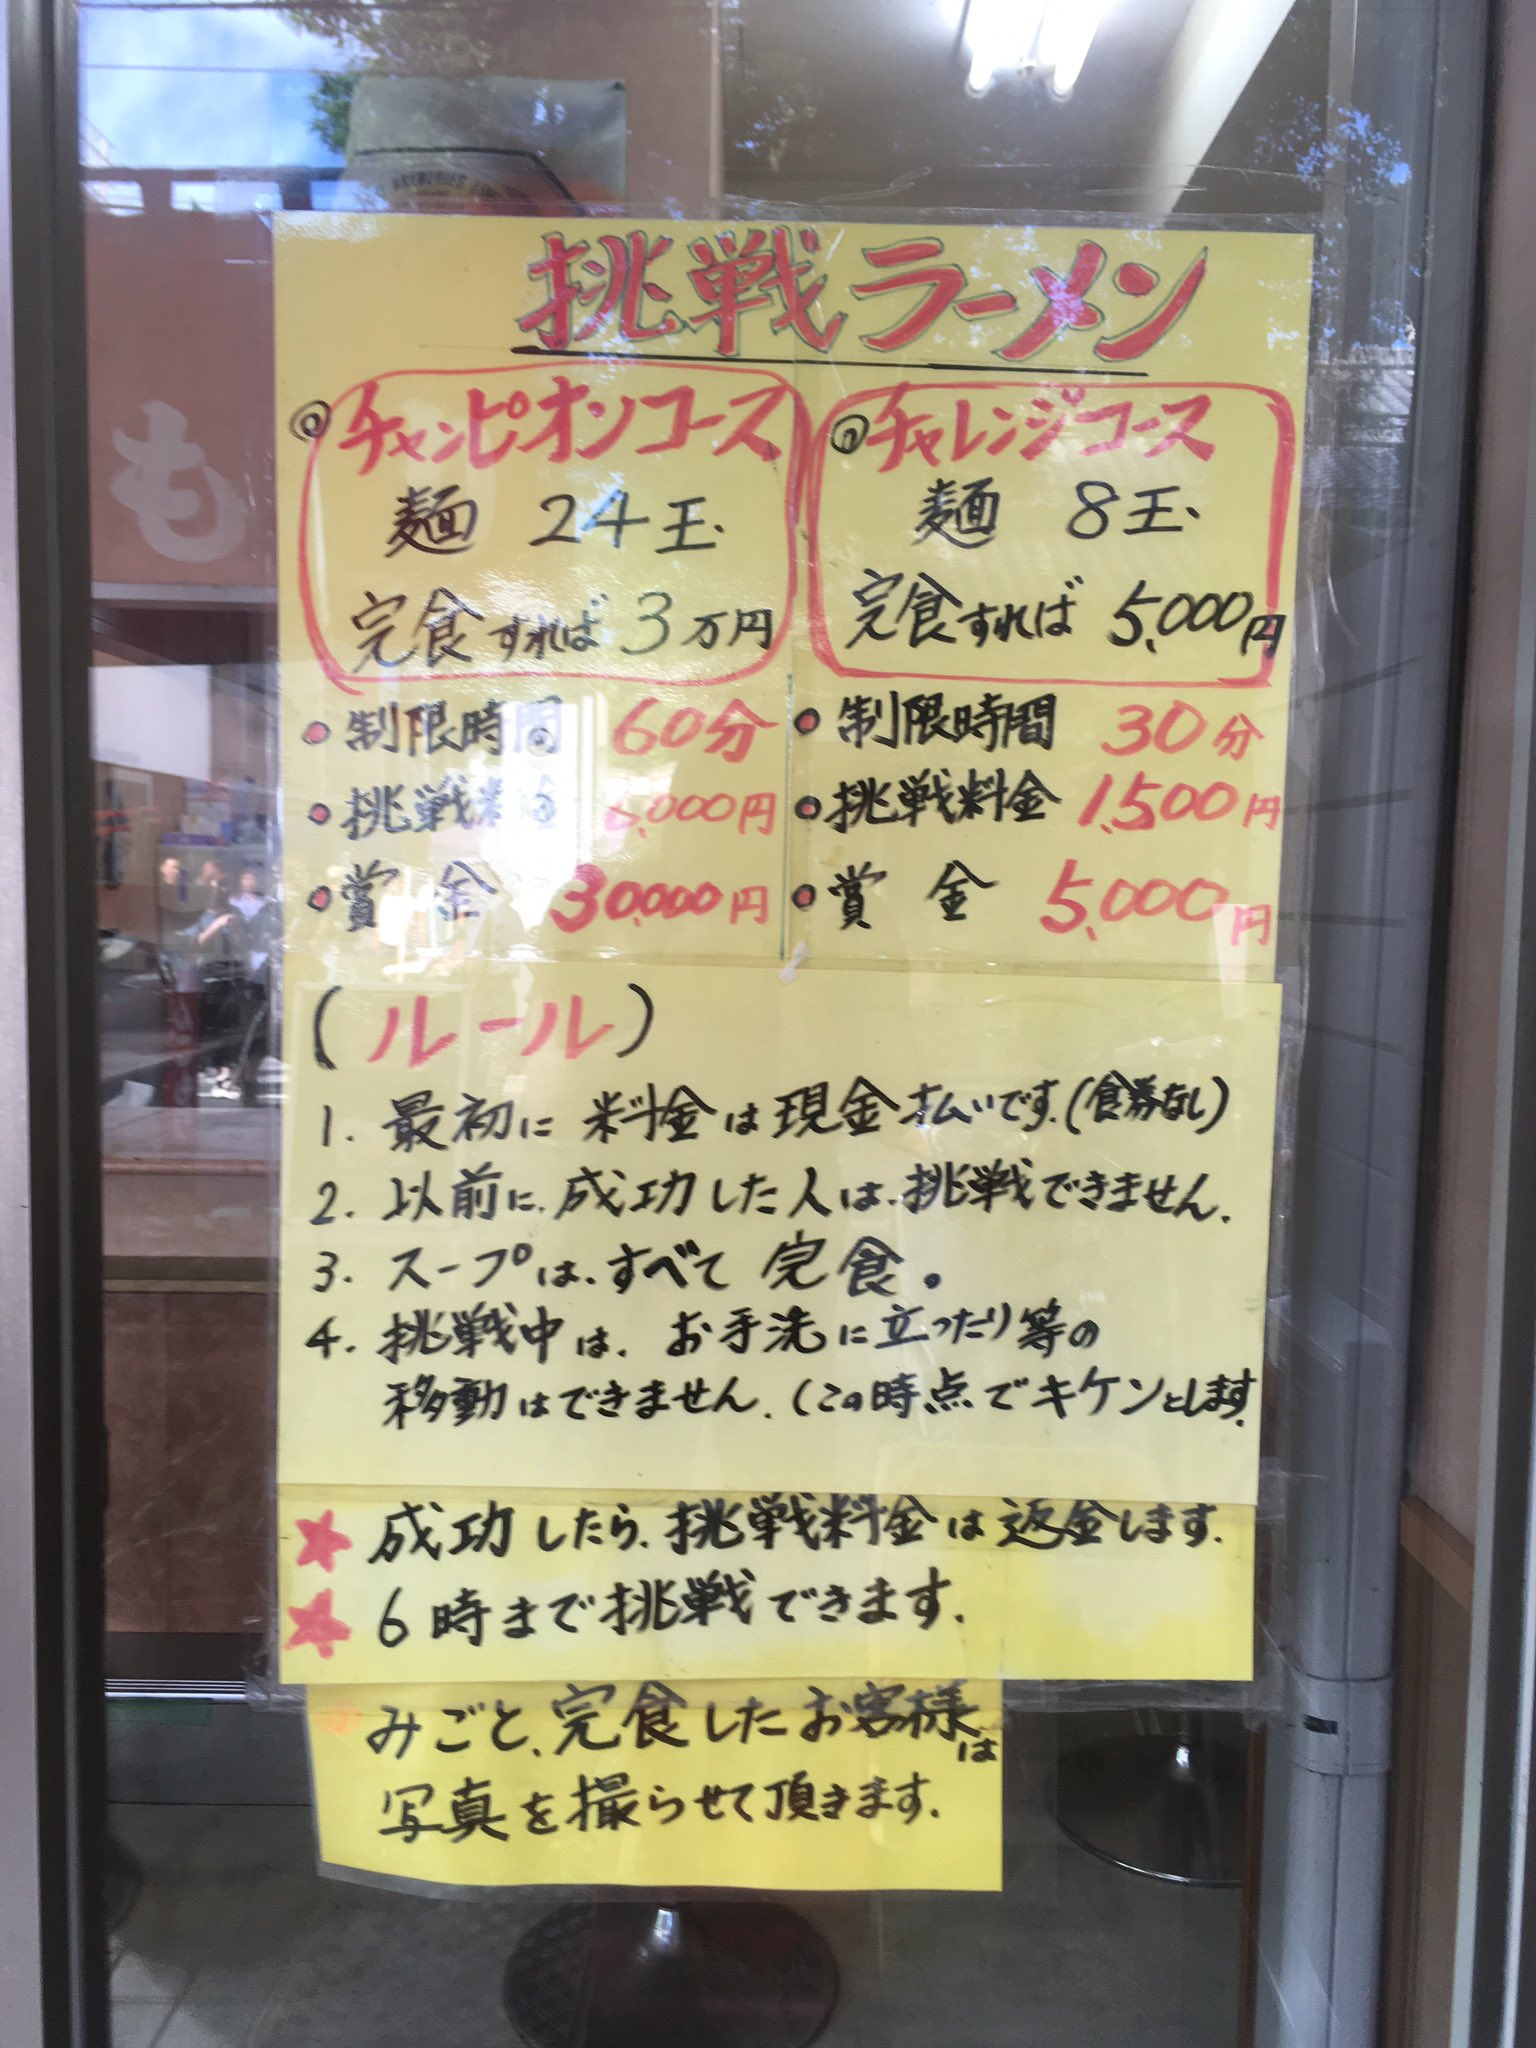 挑戦ラーメン
チャンピオンコース
麺 24玉.
完食すれば 3万円
チャレンジコース
麺 8玉.
完食すれば 5,000円
制限時間 60分
挑戦料金 ,000円
賞金 30,000円
制限時間 30分
挑戦料金 1,500円
賞金 5,000円
(ルール)
1. 最初に 料金は現金払いです.(食券なし)
2. 以前に.成功した人は.挑戦できません.
3. スープは.すべて 完食。
4. 挑戦中は. お手洗に立ったり等の
移動はできません.(この時点でキケンとします.
★ 成功したら.挑戦料金は返金します.
★ 6時まで挑戦できます.
みごと、完食したお客様は
写真を撮らせて頂きます.
も